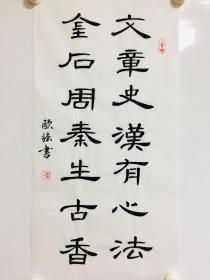 文章史漢有心法
金石周秦生古香
歐 書